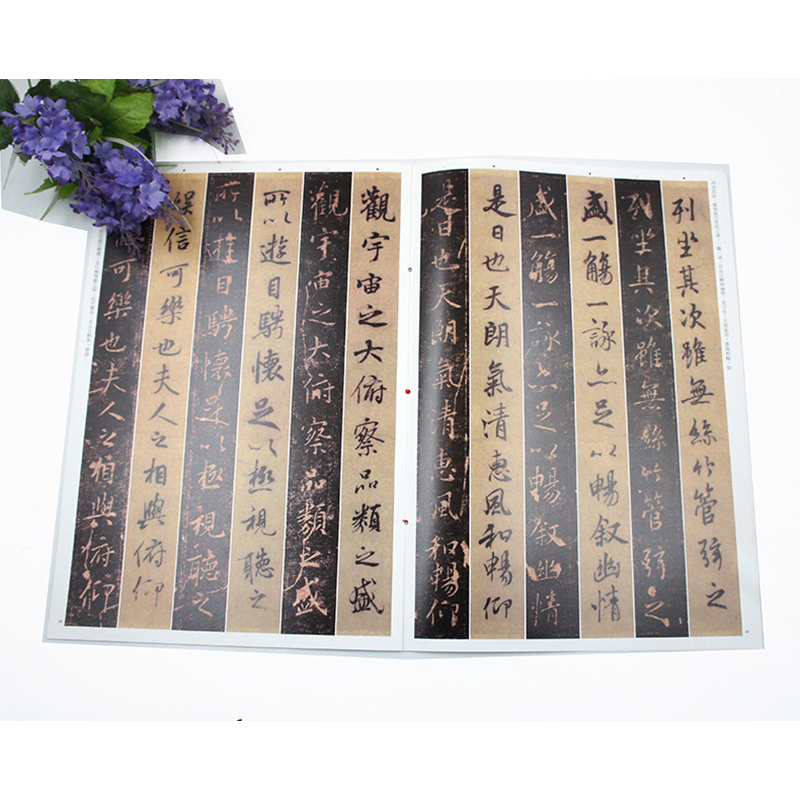 列坐其次雖無絲竹管弦之
列坐其次雖無絲竹管弦之
盛一觴一詠亦足以暢叙幽情
盛一觴一詠亦足以暢叙幽情
是日也天朗氣清惠風和暢仰
是日也天朗氣清惠風和暢仰
觀宇宙之大俯察品類之盛
觀宇宙之大俯察品類之盛
所以遊目騁懷足以極視聽之
所以遊目騁懷足以極視聽之
娛信可樂也夫人之相與俯仰
可樂也夫人之相與俯仰